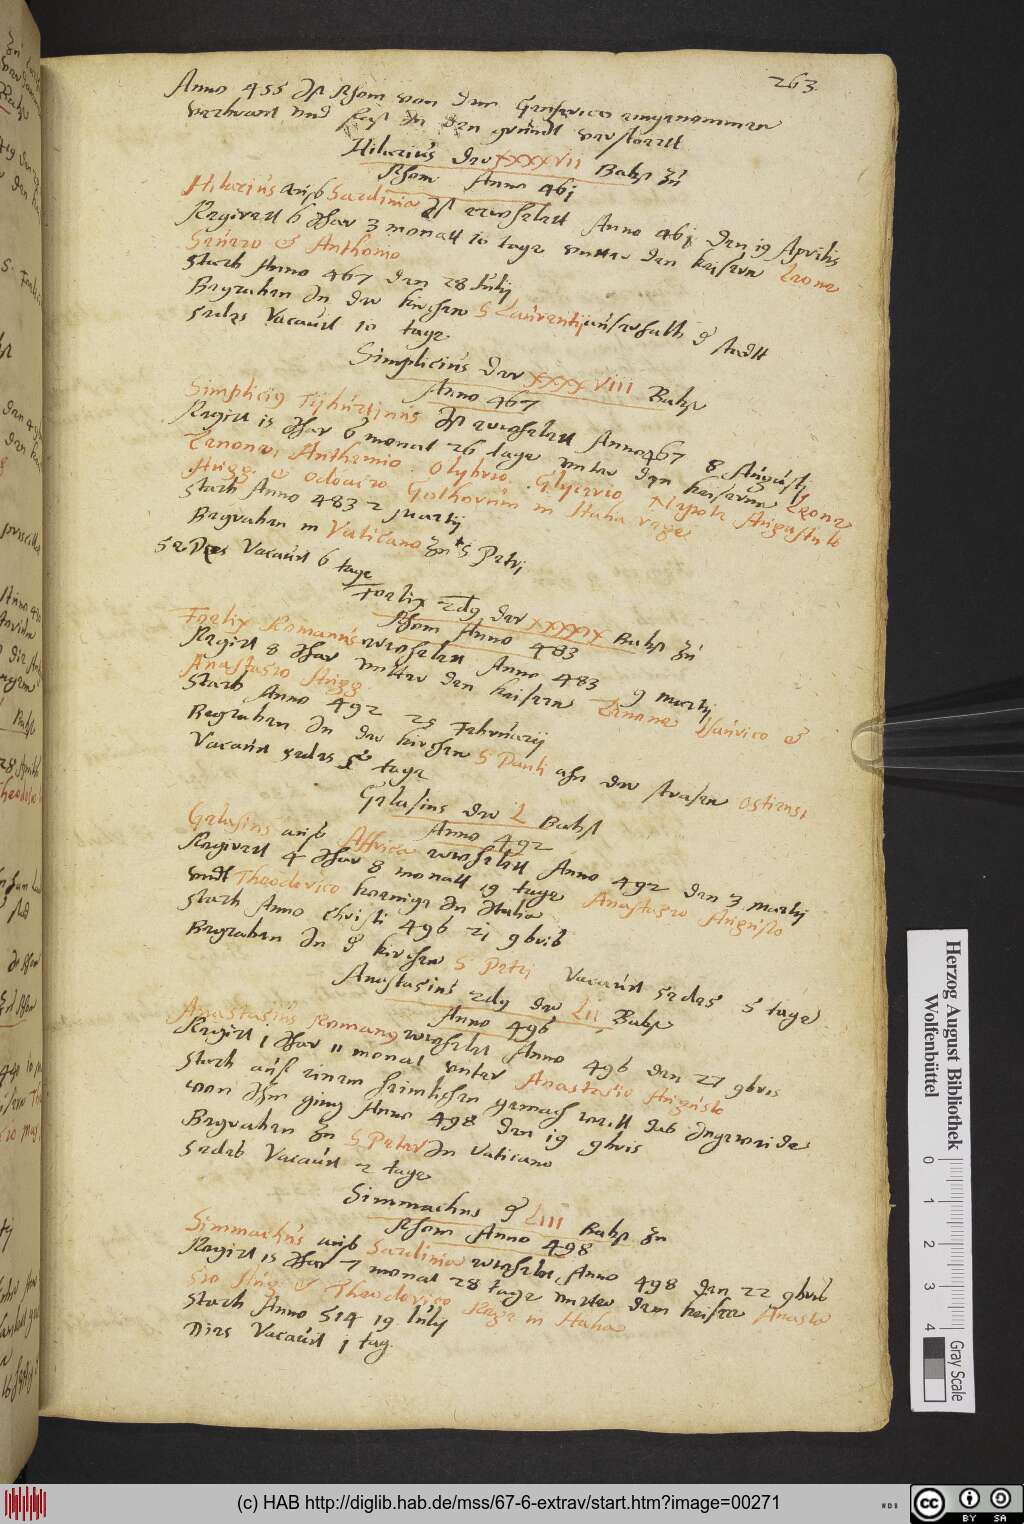 263
Anno 455 Ist Rhom von dem Genserico eingenommen
verbrant und fast In den grundt verstorett
Hilarius der XXXXVII Babst zu
Rhom Anno 461
Hilarius auss Sardinia Ist erwehlett Anno 461 den 19 Aprilis
Regirett 6 Jhar 3 monatt 10 tage untter den keisern Leone
Seuero & Anthonio
Starb Anno 467 den 28 Julij
Begraben In der kirchen S Laurentij ausserhalb der stadtt
Sedes Vacauit 10 tage
Simplicius der XXXXVIII Babst
Anno 467
Simplicius Tijburtinus Ist erwehlett Anno 467 8 Augustj
Regirt 15 Jhar 6 monat 26 tage unter den keisernn Leone
Zenone, Anthemio, Olybrio, Glycerio, Nepote Augustulo
Augg. & Odoacro Gothorum in Italia rege
Starb Anno 483 2 Martij
Begraben in Vaticano zu S Petrj
Sedes Vacauit 6 tage
Foelix 2dus der XXXXIX Babst zu
Rhom Anno 483
Foelix Romanus erwehlett Anno 483 9 Martij
Regirt 8 Jhar untter den keisern Zenone Isaurico &
Anastasio Augg.
Starb Anno 492 25 Februarij
Begraben In der kirchen S Pauli ahn der strasen Ostiensi
Vacauit sedes 5 tage
Gelasius der L Babst
Anno 492
Gelasius auss Affrica erwehlett Anno 492 den 3 Martij
Regirett 4 Jhar 8 monatt 19 tage Anastasio Augusto
undt Theoderico koenige In Italia
Starb Anno Christi 496 21 9bris
Begraben In der kirchen S Petrj Vacauit sedes 5 tage
Anastasius 2dus der LII Babst
Anno 496
Anastasius Romanus erwehlet Anno 496 den 27 9bris
Regirt 1 Jhar 11 monat unter Anastasio Augusto
Starb auf einem heimlichen gemach weill das Ingeweide
von Ihm ging Anno 498 den 19 9bris
Begraben zu S Peter In Vaticano
Sedes Vacauit 2 tage
Simmachus der LIII Babst zu
Rhom Anno 498
Simmachus auss Sardinia erwehlet Anno 498 den 22 9bris
Regirt 15 Jhar 7 monat 28 tage untter dem keiser Anasta
sio Aug. & Theoderico Rege in Italia
Starb Anno 514 19 Julij
Dies Vacauit 1 tag.
Herzog August Bibliothek
Wolfenbüttel
0 1 2 3 4
Gray Scale
(c) HAB http://diglib.hab.de/mss/67-6-extrav/start.htm?image=00271
WDB
cc BY SA